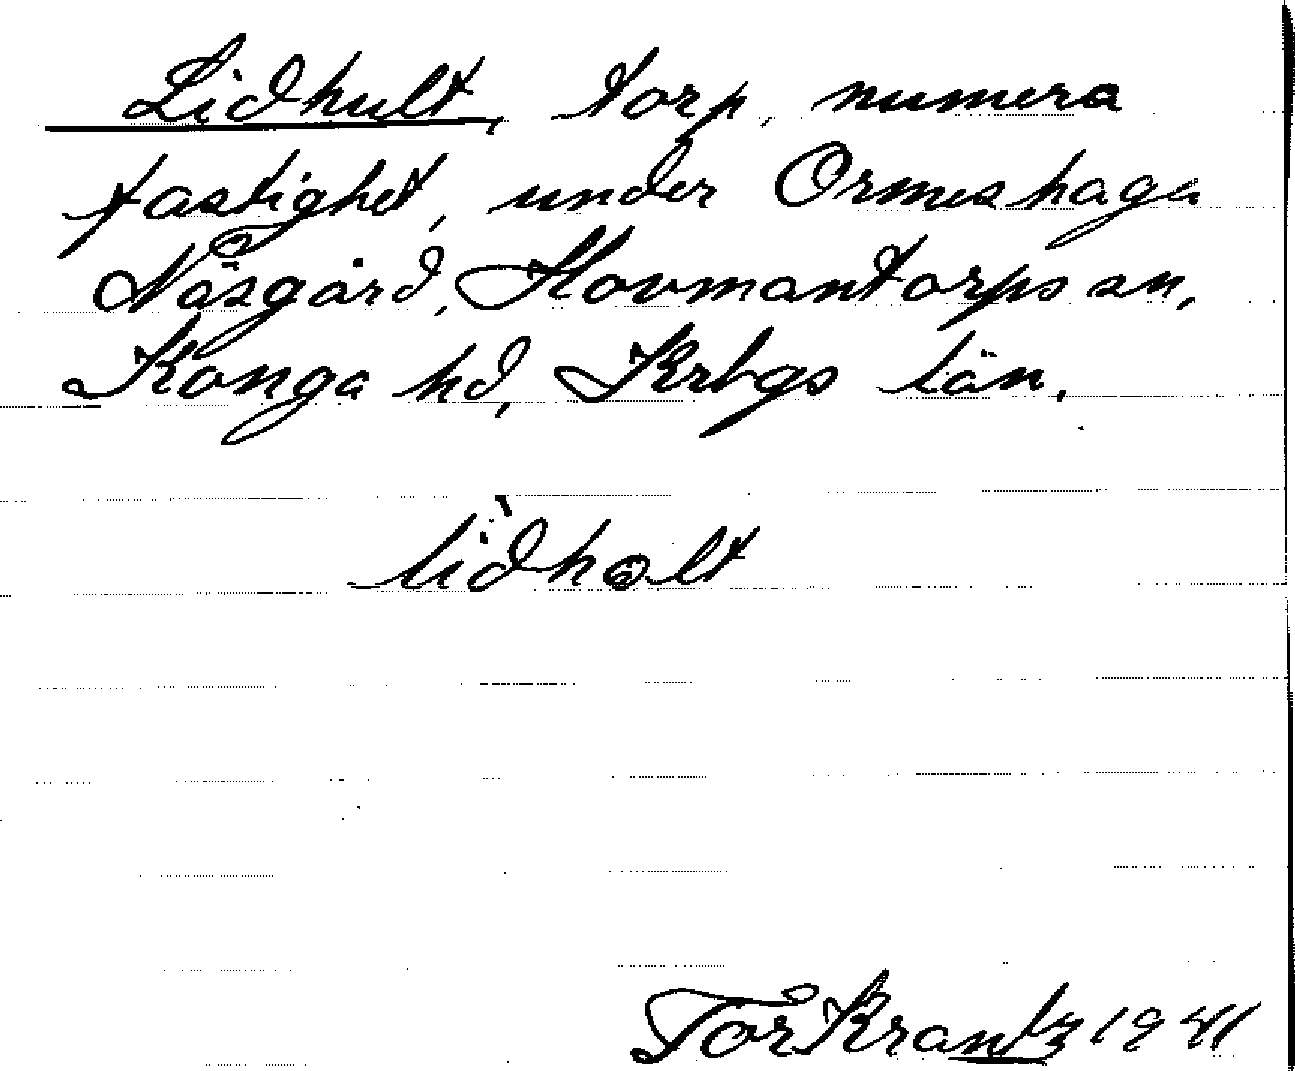 Lidhult, torp, numera
fastighet, under Ormeshaga
Näsgård, Hovmantorps sn,
Konga hd, Krbgs län.
lìdholt
Tor Krantz 1941